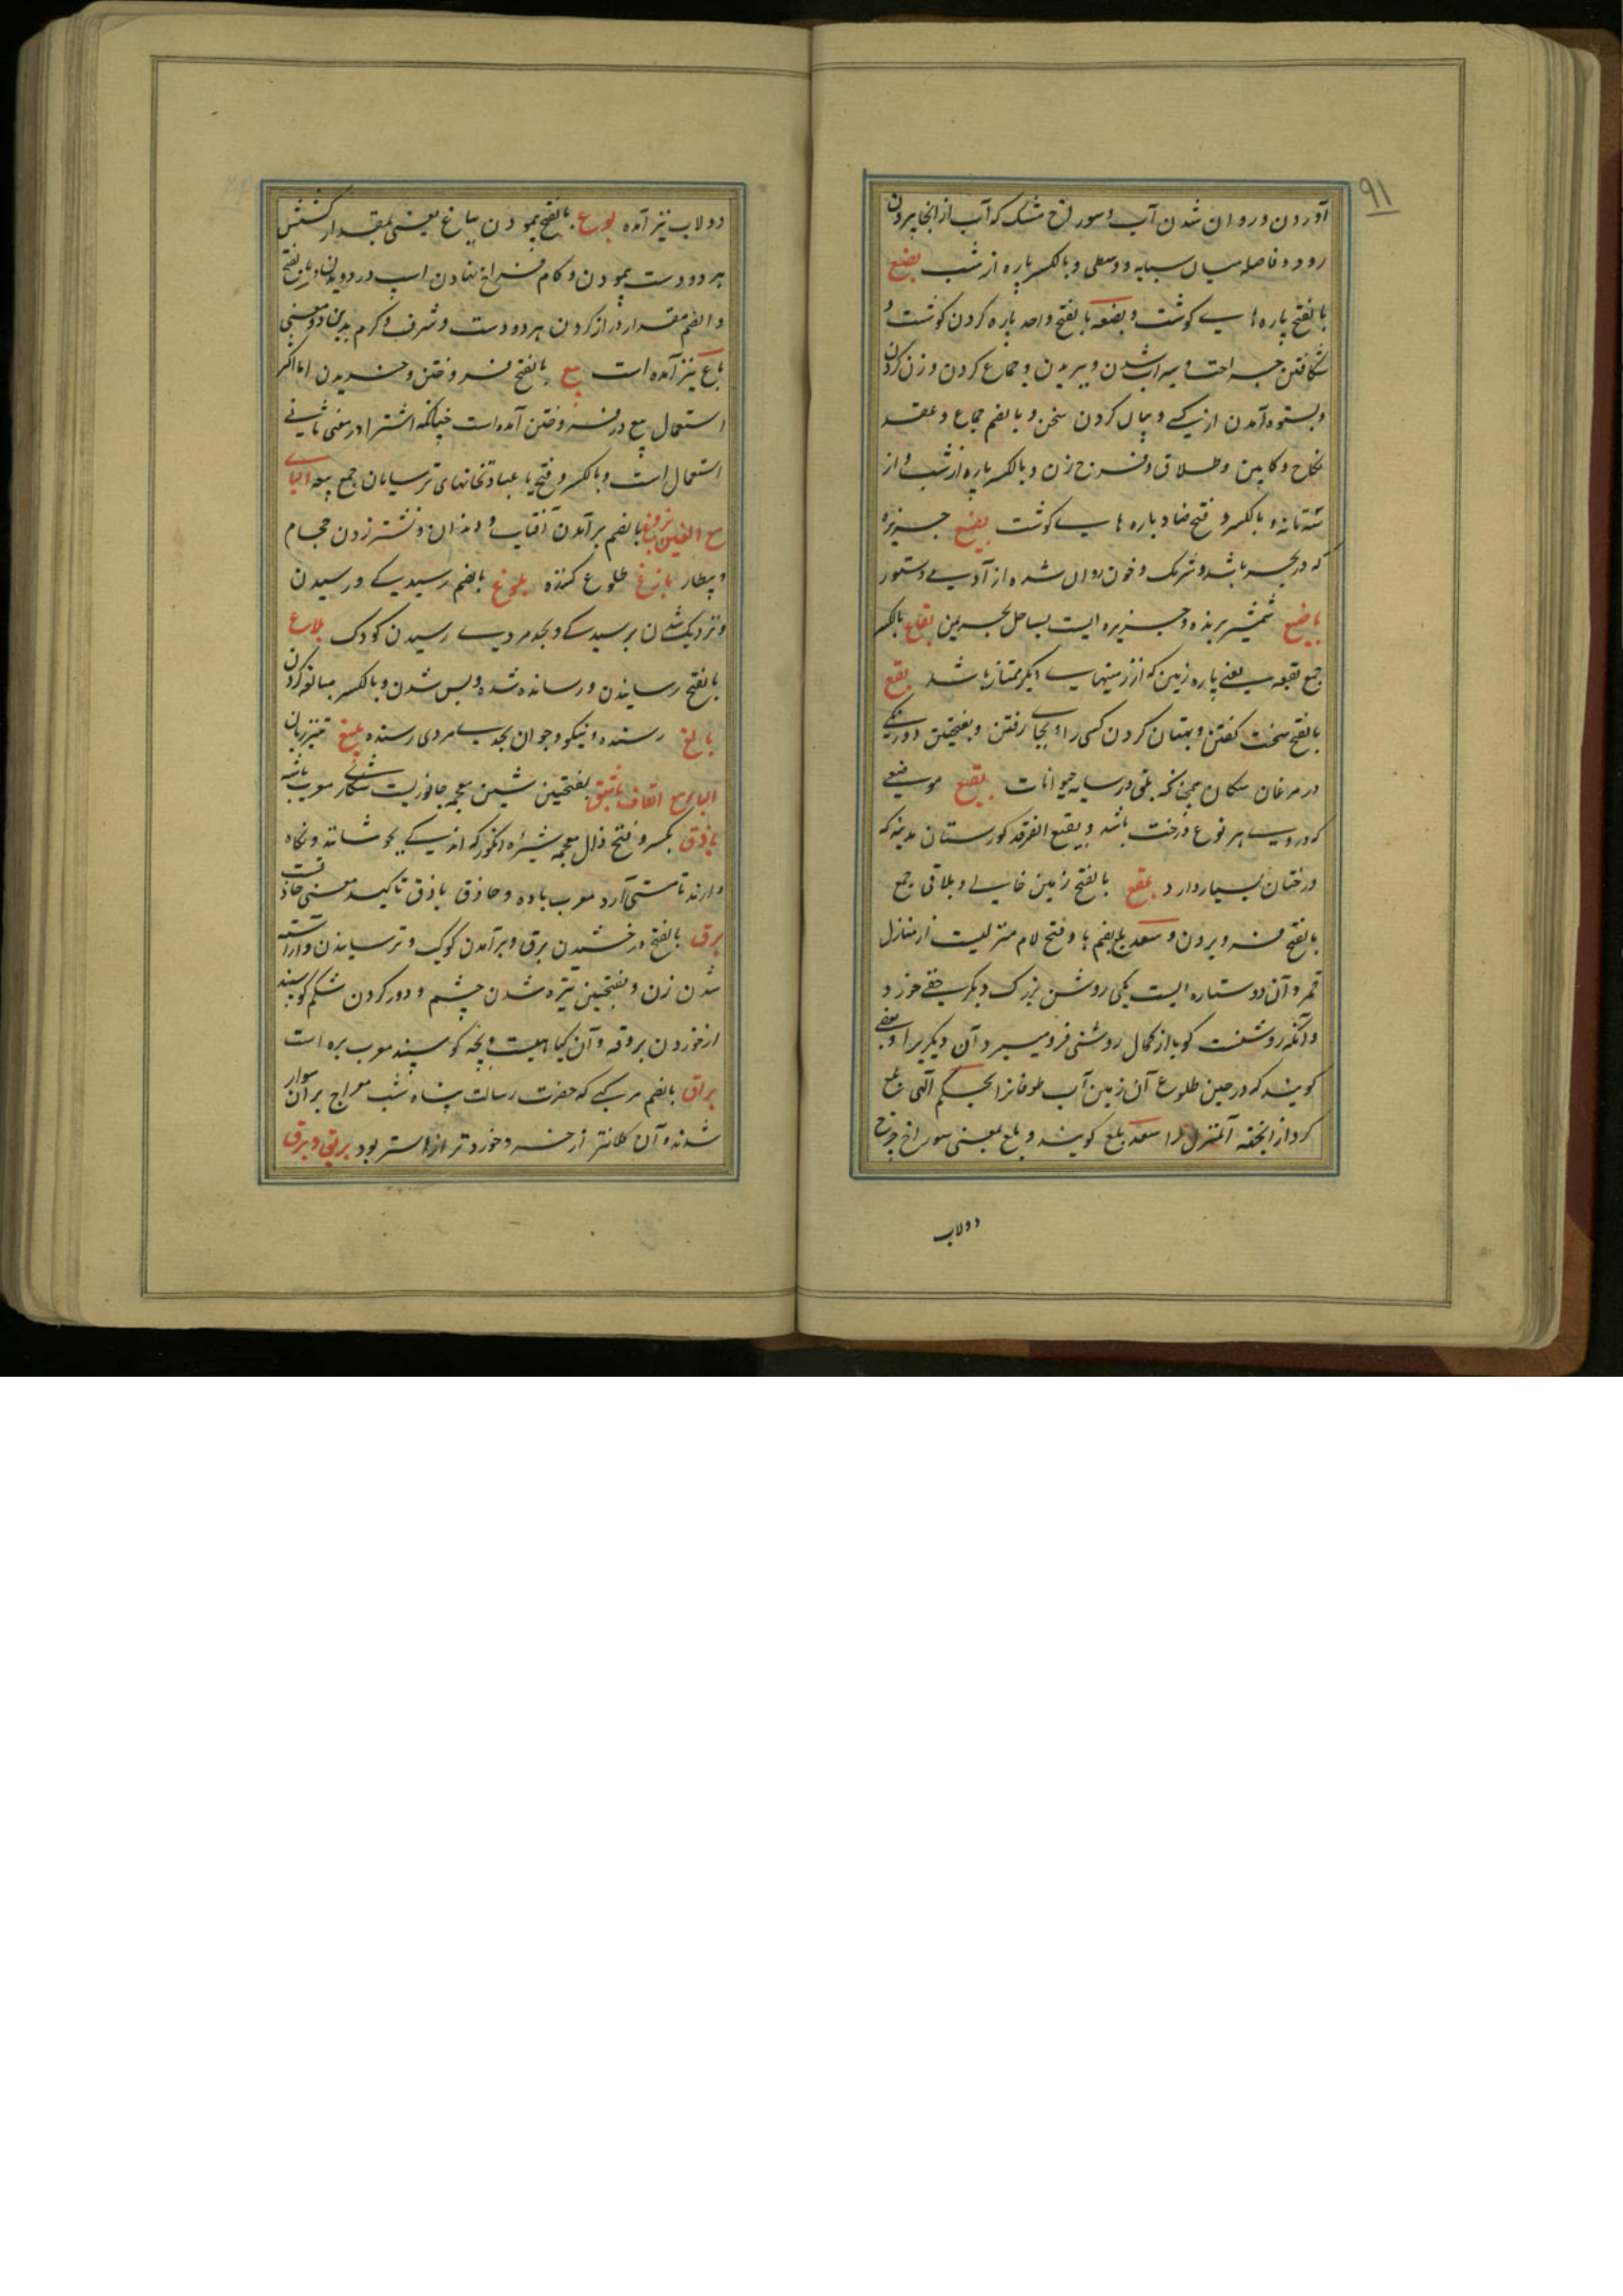 ۹۱
آوردن و روان شدن آب و سوراخ مشک که آب از انجا بیرون
رود و فاصله میان سبابه و وسطی و بالکسر پاره از شب بضع
بالفتح پاره هاے گوشت و بضعه بالفتح واحد پاره کردن گوشت و
شکافتن جراحت و سیراب شدن و بریدن و جماع کردن و زن کردن
و بستوه آمدن از کسے و بیان کردن سخن و بالضم جماع و عقد
نکاح و کابین و طلاق و فرج زن و بالکسر پاره از شب و از
سه تا نه و بالکسر و فتح ضاد پاره هاے گوشت بضیع جزیره
که در بحر باشد و شریک و خون روان شده از آدمے و ستور
باضع شمشیر برنده و جزیره ایست بساحل بحرین بقاع بالکسر
جمع بقعه یعنے پاره زمین که از زمینهاے دیگر ممتاز باشد بقع
بالفتح سخت گفتن و بهتان کردن کسی را و بجاے رفتن و بفتحتین دورنگے
در مرغان و سگان همچنانکه بلق در سایر حیوانات بقیع موضعے
که در وے هر نوع درخت باشد و بقیع الغرقد گورستان مدینه که
درختان بسیار دارد بلقع بالفتح زمین خالے و بلاقع جمع
بالفتح فرو بردن و سعد بلع بضم با و فتح لام منزلیست از منازل
قمر و آن دو ستاره ایست یکی روشن بزرگ دیگر خفے خورد
و آنکه روشنست گویا از کمال روشنی فرو میبرد آن دیگر را و بعضے
گویند که در حین طلوع آن زمین آب طوفانرا بحکم الٓهی بلع
کرد از انجهته آن منزل را سعد بلع گویند و بلع بمعنی سوراخ چرخ
دولاب
دولاب نیز آمده بوع بالفتح پیمودن بباع یعنی بمقدار کشش
هر دو دست پیمودن و گام فراخ نهادن اسپ در دویدن و باع بفتح
و الضم مقدار دراز کردن هر دو دست و شرف و کرم بدین دو معنی
باع نیز آمده است بیع بالفتح فروختن و خریدن اما اکثر
استعمال بیع در فروختن آمده است چنانکه اشترا در معنی ثانے
استعمال است و بالکسر و فتح یا عبادتخانهای ترسایان جمع بیعه الباے
مع الغین بزوغ بالضم برآمدن آفتاب و دندان و نشتر زدن حجام
و بیطار بازغ طلوع کننده بلوغ بالضم رسیدگے و رسیدن
و نزدیک شدن برسیدگے و بحد مردے رسیدن کودک بلاغ
بالفتح رسانیدن و رسانده شده و بس شدن و بالکسر مبالغه کردن
بالغ رسنده و نیکو و جوان بحدے مردی رسنده بلیغ تیز زبان
الباے مع القاف باشق بفتحتین شین معجمه جانوریست شکارے معرب باشه
باذق بکسر و فتح ذال معجمه شیره انگور که اندکے بجوشانند و نگاه
دارند تا مستی آرد معرب باده و حاذق باذق تاکید معنی حاذقست
برق بالفتح درخشیدن برق و برآمدن کوکب و ترسانیدن و آراسته
شدن زن و بفتحتین تیره شدن چشم و دور کردن شکم گوسپند
از خوردن بروقه و آن گیاهیست و بچه گوسپند معرب بره است
براق بالضم مرکبے که حضرت رسالت پناه شب معراج بر آن سوار
شدند و آن کلانتر از خر و خوردتر از استر بود بریق و برق